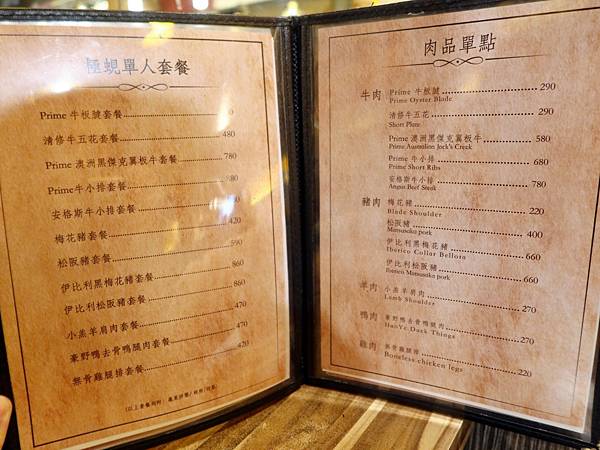 極蜆單人套餐
Prime 牛板腱套餐
清修牛五花套餐 480
Prime 澳洲黑傑克翼板牛套餐 780
Prime牛小排套餐
安格斯牛小排套餐
梅花豬套餐 420
松阪豬套餐 590
伊比利黑梅花豬套餐 860
伊比利松阪豬套餐 860
小羔羊肩肉套餐 470
豪野鴨去骨鴨腿肉套餐 470
無骨雞腿排套餐 420
肉品單點
牛肉 Prime 牛板腱 290
Prime Oyster Blade
清修牛五花 290
Short Plate
Prime 澳洲黑傑克翼板牛 580
Prime Australian Jack's Creek
Prime 牛小排 680
Prime Short Ribs
安格斯牛小排 780
Angus Beef Steak
豬肉 梅花豬 220
Blade Shoulder
松阪豬 400
Matsusaka pork
伊比利黑梅花豬 660
Iberico Collar Bellota
伊比利松阪豬 660
Iberico Matsusaka pork
羊肉 小羔羊肩肉 270
Lamb Shoulder
鴨肉 豪野鴨去骨鴨腿肉 270
HaoYe Duck Things
雞肉 無骨雞腿排 220
Boneless chicken legs